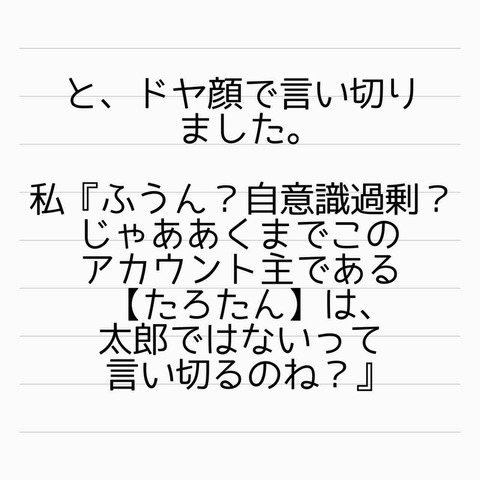 と、ドヤ顔で言い切り
ました。
私『ふうん？自意識過剰？
じゃああくまでこの
アカウント主である
【たろたん】は、
太郎ではないって
言い切るのね？』